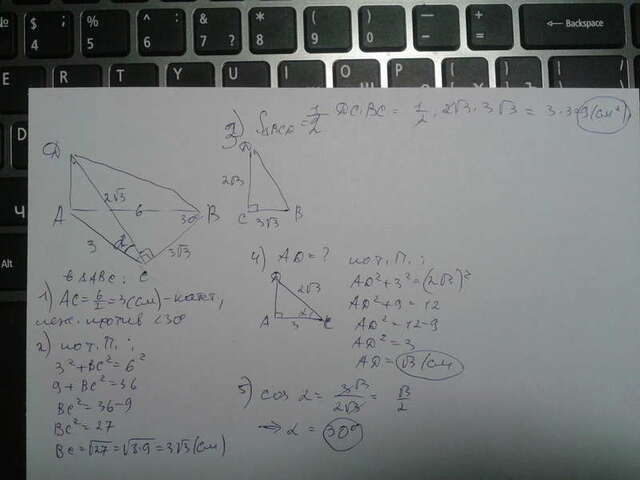 № $ 4 % 5 ^ 6 & 7 ? * 8 ( 9 ) 0 - + = Backspace
E R T O P {
Alt
3) S△BCD = 1/2 DC·BC = 1/2 · 2√3 · 3√3 = 3·3=9(см²)
D
2√3
C 3√3 B
D
2√3
A 6 30° B
3 α 3√3
C
в △ABC:
1) AC = 6/2 = 3(см) – катет,
леж. против <30°
2) по т.П.:
3² + BC² = 6²
9 + BC² = 36
BC² = 36-9
BC² = 27
BC = √27 = √3·9 = 3√3 (см)
4) AD = ?
D
2√3
A 3 α C
по т.П.:
AD² + 3² = (2√3)²
AD² + 9 = 12
AD² = 12-9
AD² = 3
AD = √3 (см
5) cos α = 3√3/2√3 = √3/2
⇒ α = 30°